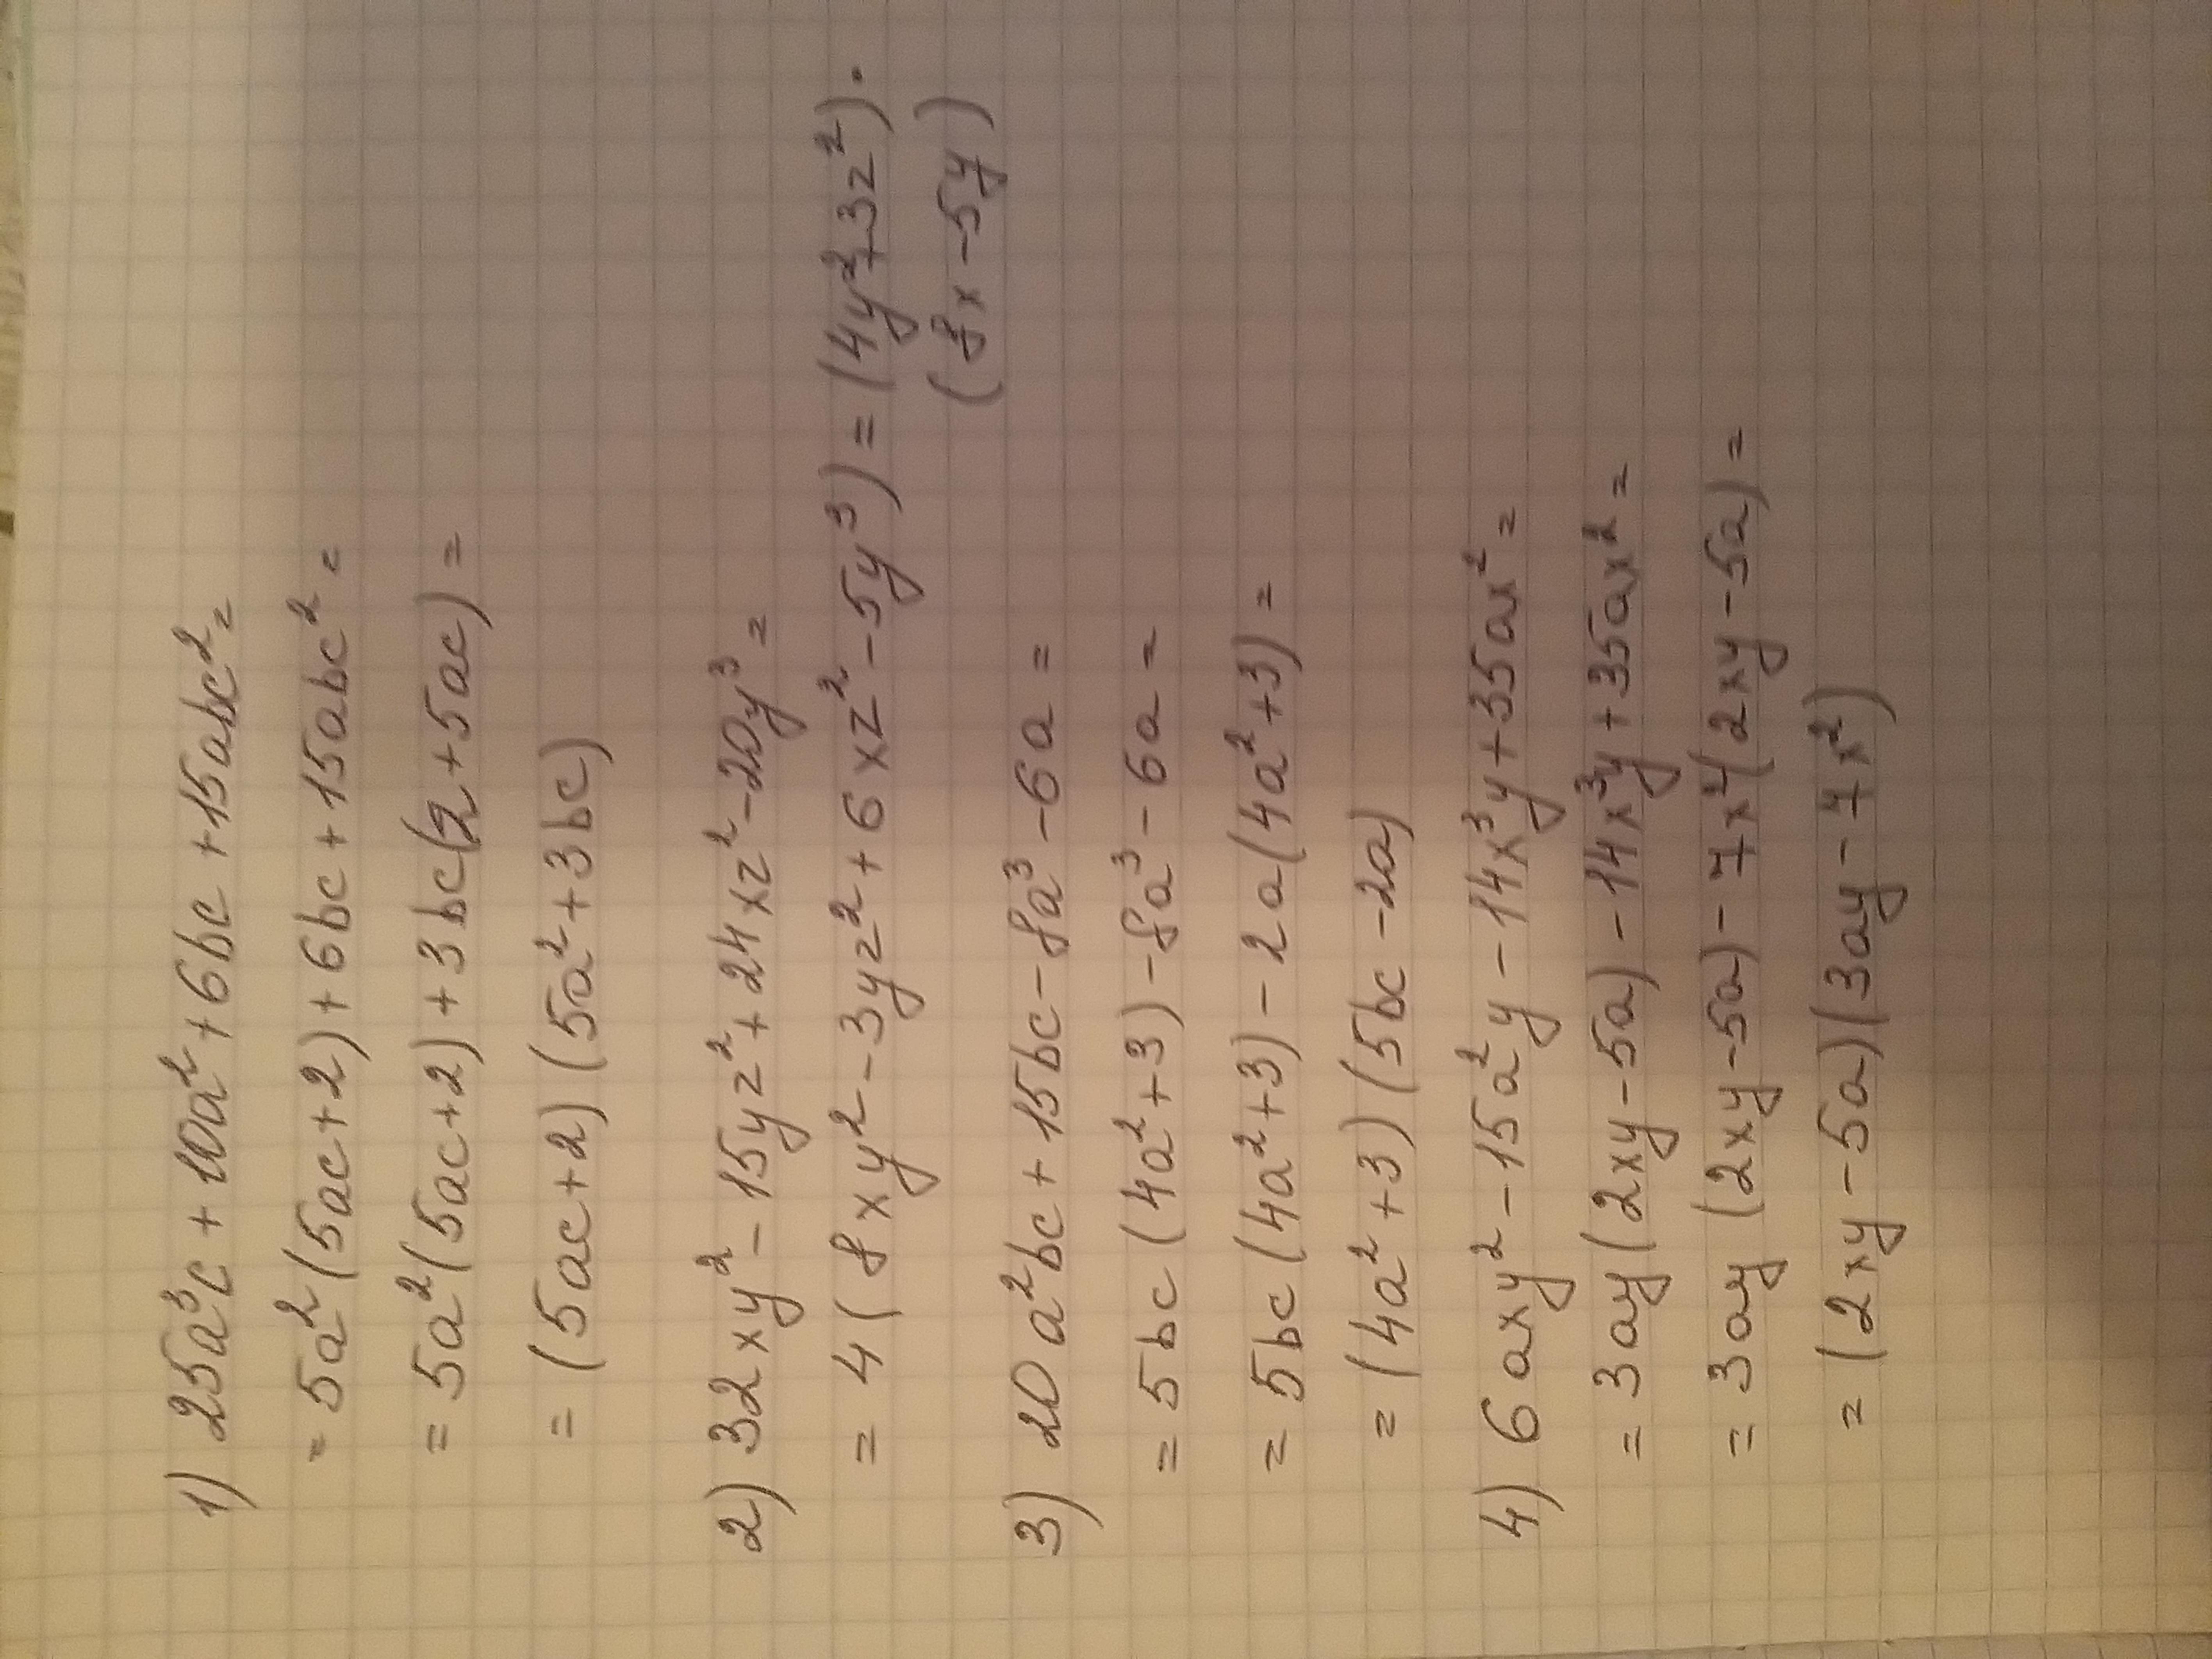 1) 25a³c + 10a² + 6bc + 15abc² =
= 5a² (5ac + 2) + 6bc + 15abc² =
= 5a² (5ac + 2) + 3bc (2 + 5ac) =
= (5ac + 2) (5a² + 3bc)
2) 32xy² - 15yz² + 24xz² - 20y³ =
= 4 ( 8xy² - 3yz² + 6xz² - 5y³) = (4y² + 3z²) ·
(8x - 5y)
3) 20a²bc + 15bc - 8a³ - 6a =
= 5bc (4a² + 3) - 8a³ - 6a =
= 5bc (4a² + 3) - 2a (4a² + 3) =
= (4a² + 3) (5bc - 2a)
4) 6axy² - 15a²y - 14x³y + 35ax² =
= 3ay (2xy - 5a) - 14x³y + 35ax² =
= 3ay (2xy - 5a) - 7x² (2xy - 5a) =
= (2xy - 5a) (3ay - 7x²)